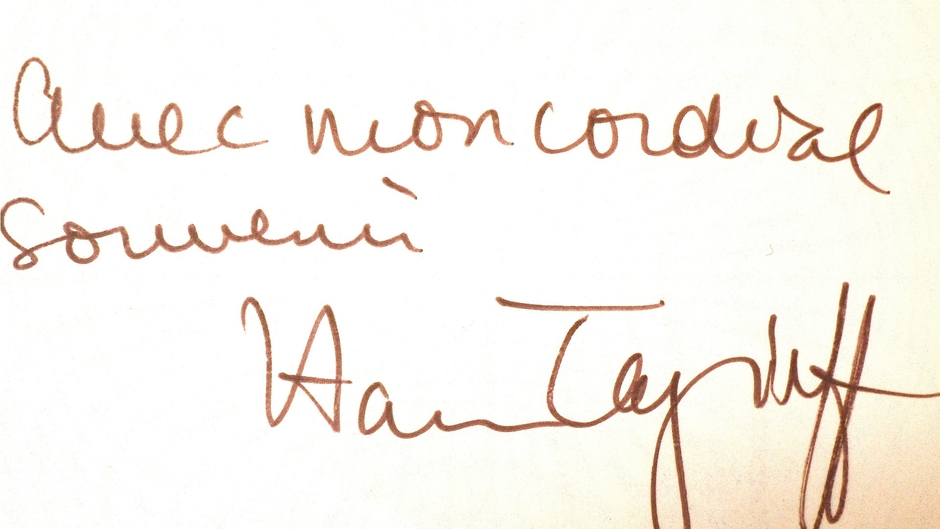 avec mon cordial
souvenir
Haroun Tazieff